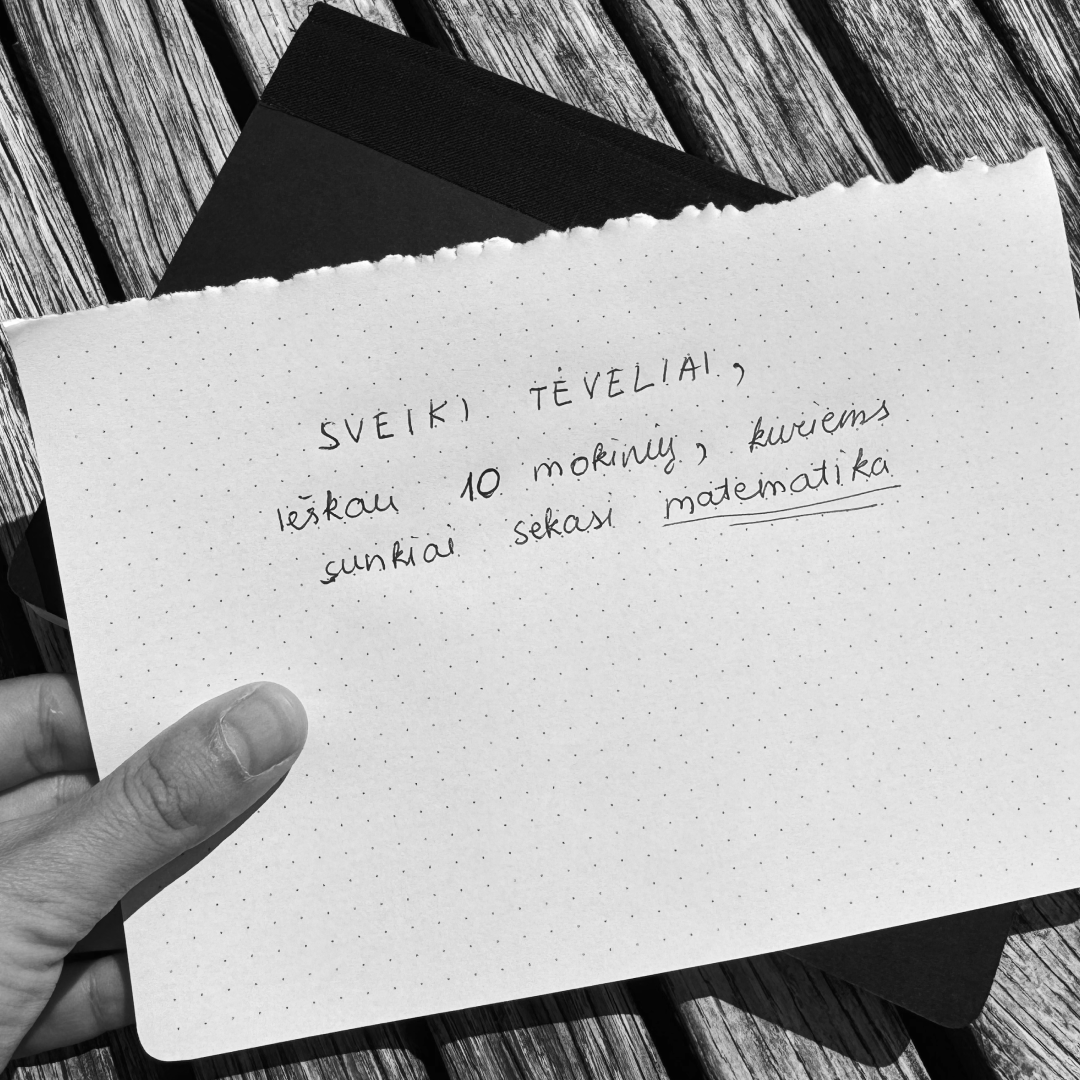 SVEIKI TĖVELIAI,
Ieškau 10 mokinių, kuriems
sunkiai sekasi matematika